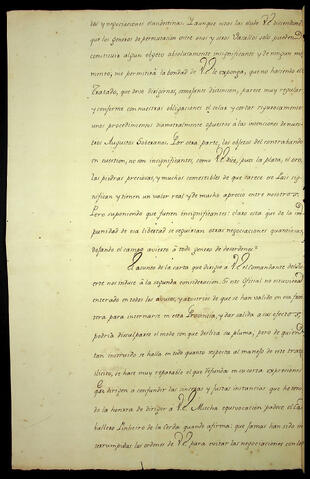 dos y negociaciones clandestinas. Y aunque unos las dude V.E. diciendome
que los generos de permutacion entre unos y otros Vasallos solo pueden
constituir algun objeto absolutamente insignificante y de ningun mo-
mento, me permitirá la bondad de V.E. le exponga, que no haciendo el
Tratado, que debe dirigirnos, semejante distincion, parece muy regular
y conforme con nuestras obligaciones el celar y cortar rigurosamente
unos procedimientos diametralmente opuestos a las intenciones de nues-
tros Augustos Soberanos. Por otra parte, los objetos del contrabando
en cuestion, no son insignificantes, como V.E. dice, pues la plata, el oro,
las piedras preciosas, y muchos comestibles de que carece ese Pais sig-
nifican y tienen un valor real y de mucho aprecio entre nosotros.
Pero suponiendo que fuesen insignificantes: claro está que de la im-
punidad de esa libertad se seguirian otras negociaciones quantiosas,
dejando el campo avierto à todo genero de desordenes.
El asunto de la carta que dirigio a V.E. el Comandante del
nos induce á la segunda consideracion. Si este Oficial no estuviera
enterado en todos los abusos, y atajos de que se han valido en esa fron-
tera para internarse en esta Provincia, y dar salida a sus efectos,
podria disculparse el modo con que desliza su pluma; pero de quien
tan instruido se halla en todo quanto respecta al manejo de este trato
ilicito, se hace muy reparable el que difunda en su carta expresiones
que dirigen a confundir las sinceras y justas instancias que he teni-
do la honrra de dirigir à V.E. Mucha equivocacion padece el Ca-
ballero Pinheiro de la Cerda quando afirma: que jamas han sido in-
terrumpidas las ordenes de V.E. para evitar las negociaciones con los